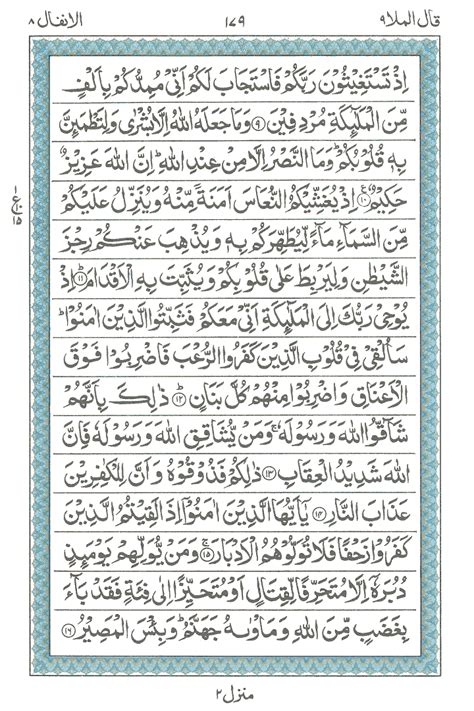 قال الملا ٩ ١٧٩ الانفال ٨
اِذْ تَسْتَغِیْثُوْنَ رَبَّكُمْ فَاسْتَجَابَ لَكُمْ اَنِّیْ مُمِدُّكُمْ بِاَلْفٍ
مِّنَ الْمَلٰٓىِٕكَةِ مُرْدِفِیْنَ ۹ وَمَا جَعَلَهُ اللّٰهُ اِلَّا بُشْرٰی وَلِتَطْمَىِٕنَّ
بِهٖ قُلُوْبُكُمْ ؕ وَمَا النَّصْرُ اِلَّا مِنْ عِنْدِ اللّٰهِ ؕ اِنَّ اللّٰهَ عَزِیْزٌ
حَكِیْمٌ ۱۰ اِذْ یُغَشِّیْكُمُ النُّعَاسَ اَمَنَةً مِّنْهُ وَیُنَزِّلُ عَلَیْكُمْ
مِّنَ السَّمَآءِ مَآءً لِّیُطَهِّرَكُمْ بِهٖ وَیُذْهِبَ عَنْكُمْ رِجْزَ
الشَّیْطٰنِ وَلِیَرْبِطَ عَلٰی قُلُوْبِكُمْ وَیُثَبِّتَ بِهِ الْاَقْدَامَ ؕ ۱۱ اِذْ
یُوْحِیْ رَبُّكَ اِلَی الْمَلٰٓىِٕكَةِ اَنِّیْ مَعَكُمْ فَثَبِّتُوا الَّذِیْنَ اٰمَنُوْا ؕ
سَاُلْقِیْ فِیْ قُلُوْبِ الَّذِیْنَ كَفَرُوا الرُّعْبَ فَاضْرِبُوْا فَوْقَ
الْاَعْنَاقِ وَاضْرِبُوْا مِنْهُمْ كُلَّ بَنَانٍ ؕ ۱۲ ذٰلِكَ بِاَنَّهُمْ
شَآقُّوا اللّٰهَ وَرَسُوْلَهٗ ۚ وَمَنْ یُّشَاقِقِ اللّٰهَ وَرَسُوْلَهٗ فَاِنَّ
اللّٰهَ شَدِیْدُ الْعِقَابِ ۱۳ ذٰلِكُمْ فَذُوْقُوْهُ وَاَنَّ لِلْكٰفِرِیْنَ
عَذَابَ النَّارِ ۱۴ یٰۤاَیُّهَا الَّذِیْنَ اٰمَنُوْۤا اِذَا لَقِیْتُمُ الَّذِیْنَ
كَفَرُوْا زَحْفًا فَلَا تُوَلُّوْهُمُ الْاَدْبَارَ ۚ ۱۵ وَمَنْ یُّوَلِّهِمْ یَوْمَىِٕذٍ
دُبُرَهٗۤ اِلَّا مُتَحَرِّفًا لِّقِتَالٍ اَوْ مُتَحَیِّزًا اِلٰی فِئَةٍ فَقَدْ بَآءَ
بِغَضَبٍ مِّنَ اللّٰهِ وَمَاْوٰىهُ جَهَنَّمُ ؕ وَبِئْسَ الْمَصِیْرُ ۱۶
١
ع ١٠
١٥
منزل ٢